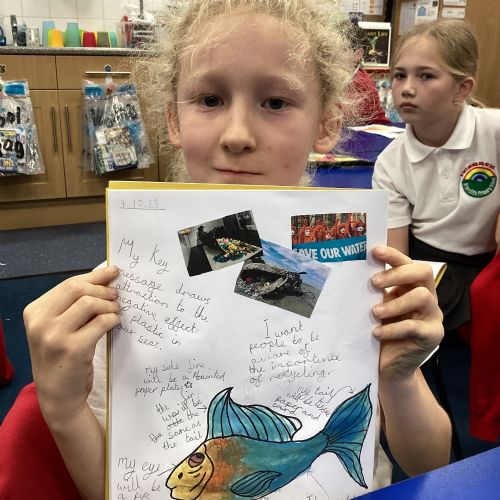 9.10.23
My key
message draws
attraction to the
negative effect
plastic in
our seas.
SAVE OUR WATER
I want
people to be
aware of
the importence
of recycling.
my side fin
will be a painted
paper plate
the fin
would be
the
same as
the tail
the tail
will be tissue
paper and
card
my eye
will be
a